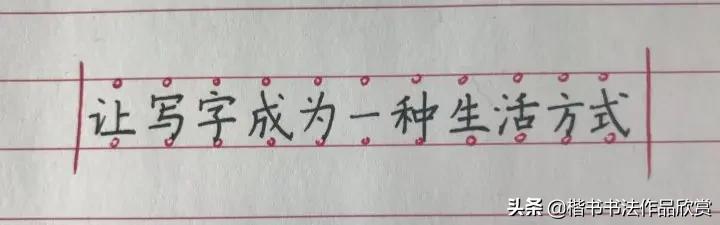 让写字成为一种生活方式
头条 @楷书书法作品欣赏